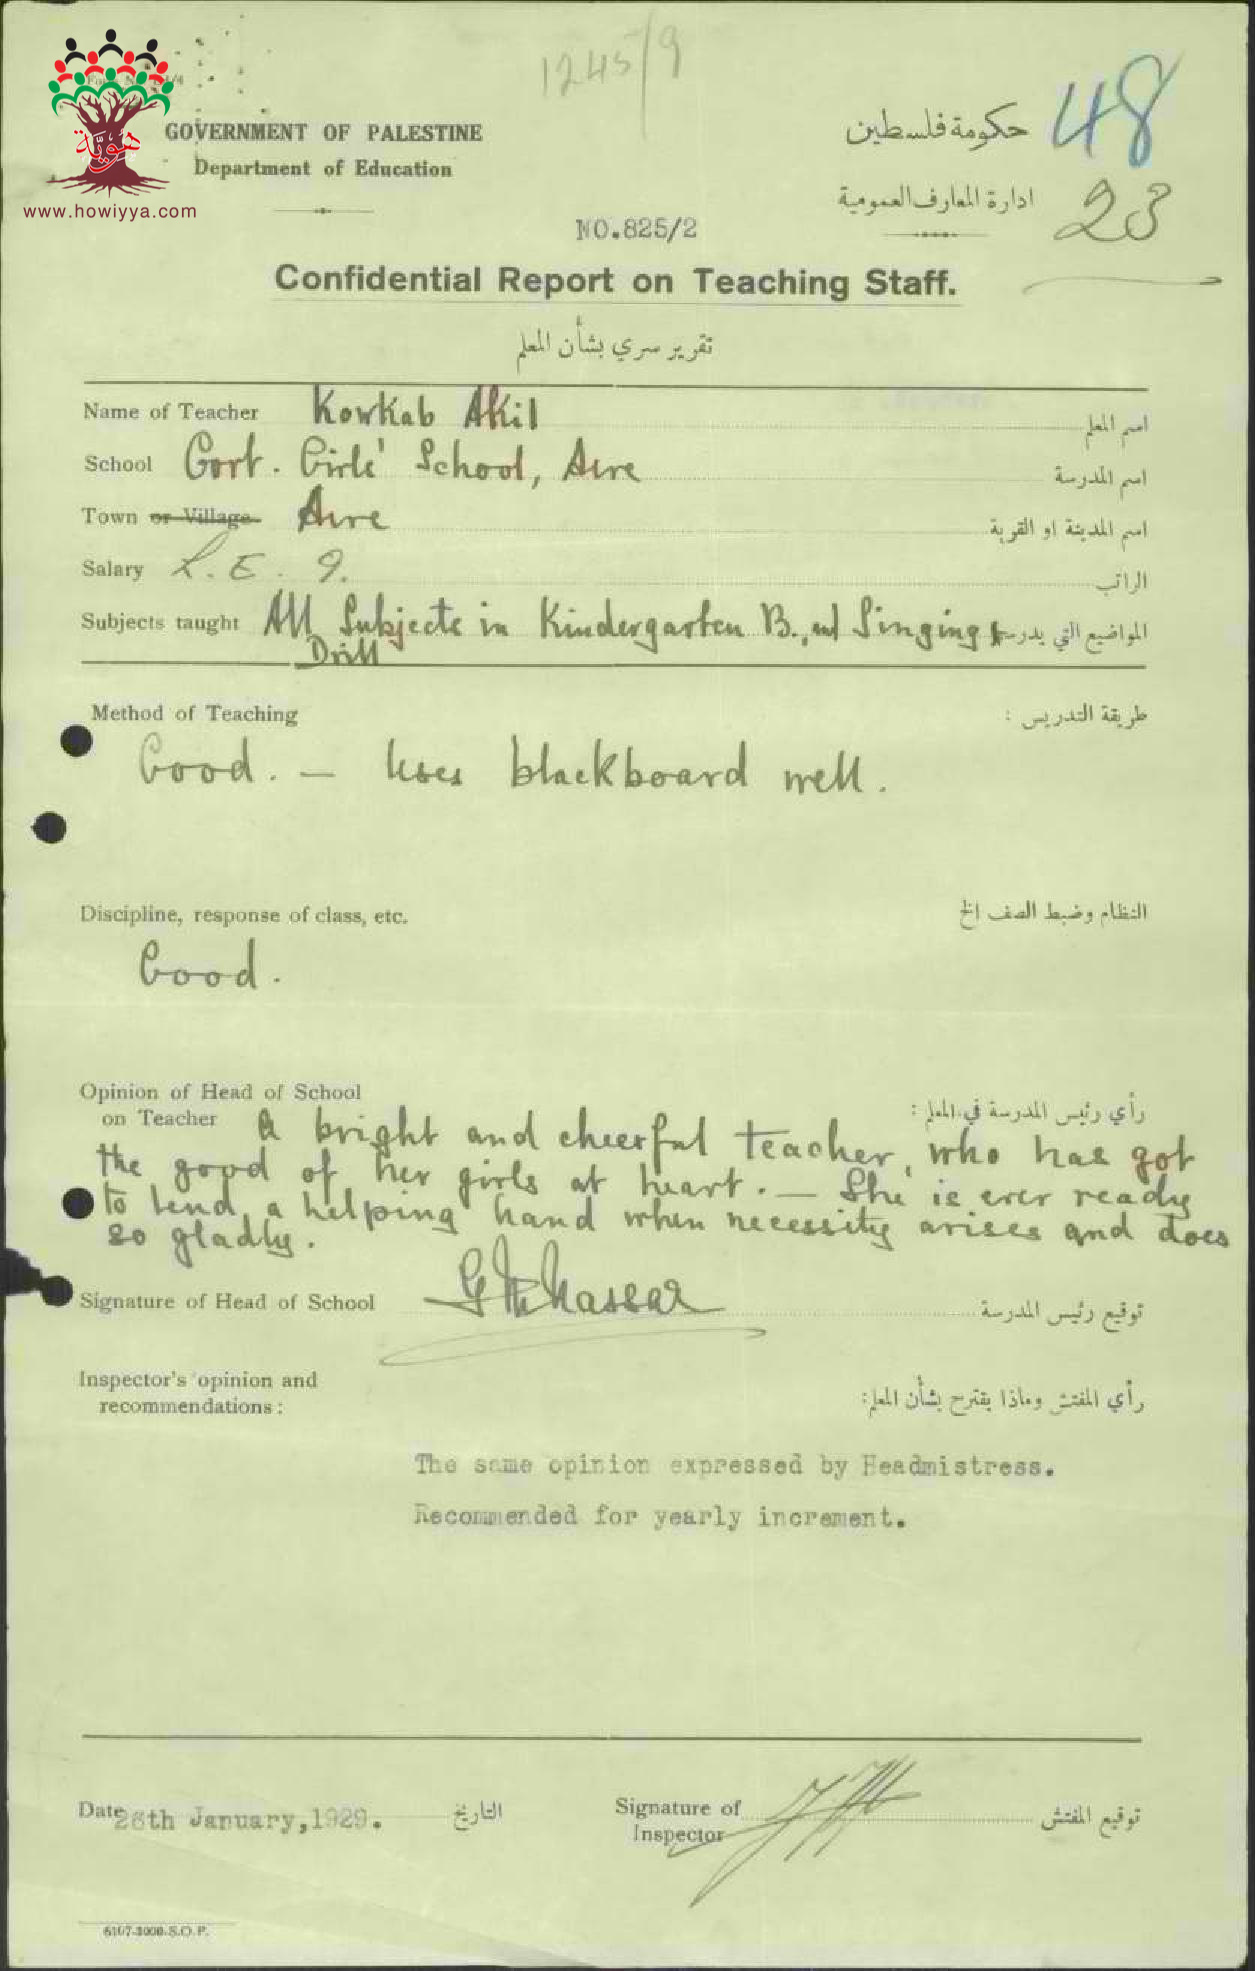 1245/9
هويّة
www.howiyya.com
GOVERNMENT OF PALESTINE
Department of Education
حكومة فلسطين
ادارة المعارف العمومية
48
23
NO.825/2
Confidential Report on Teaching Staff.
تقرير سري بشأن المعلم
Name of Teacher Kowkab Akil اسم المعلم
School Govt. Girls' School, Acre اسم المدرسة
Town or Village Acre اسم المدينة او القرية
Salary L.E. 9. الراتب
Subjects taught All Subjects in Kindergarten B., and Singing & المواضيع التي يدرسها
Drill
Method of Teaching طريقة التدريس :
Good. — Uses blackboard well.
Discipline, response of class, etc. النظام وضبط الصف الخ
Good.
Opinion of Head of School
on Teacher رأي رئيس المدرسة في المعلم :
A bright and cheerful teacher, who has got
the good of her girls at heart. — She is ever ready
to lend a helping hand when necessity arises and does
so gladly.
Signature of Head of School Nassar توقيع رئيس المدرسة
Inspector's opinion and
recommendations : رأي المفتش وماذا يقترح بشأن المعلم:
The same opinion expressed by Headmistress.
Recommended for yearly increment.
Date 26th January, 1929. التاريخ
Signature of
Inspector توقيع المفتش
6107-3000-S.O.P.